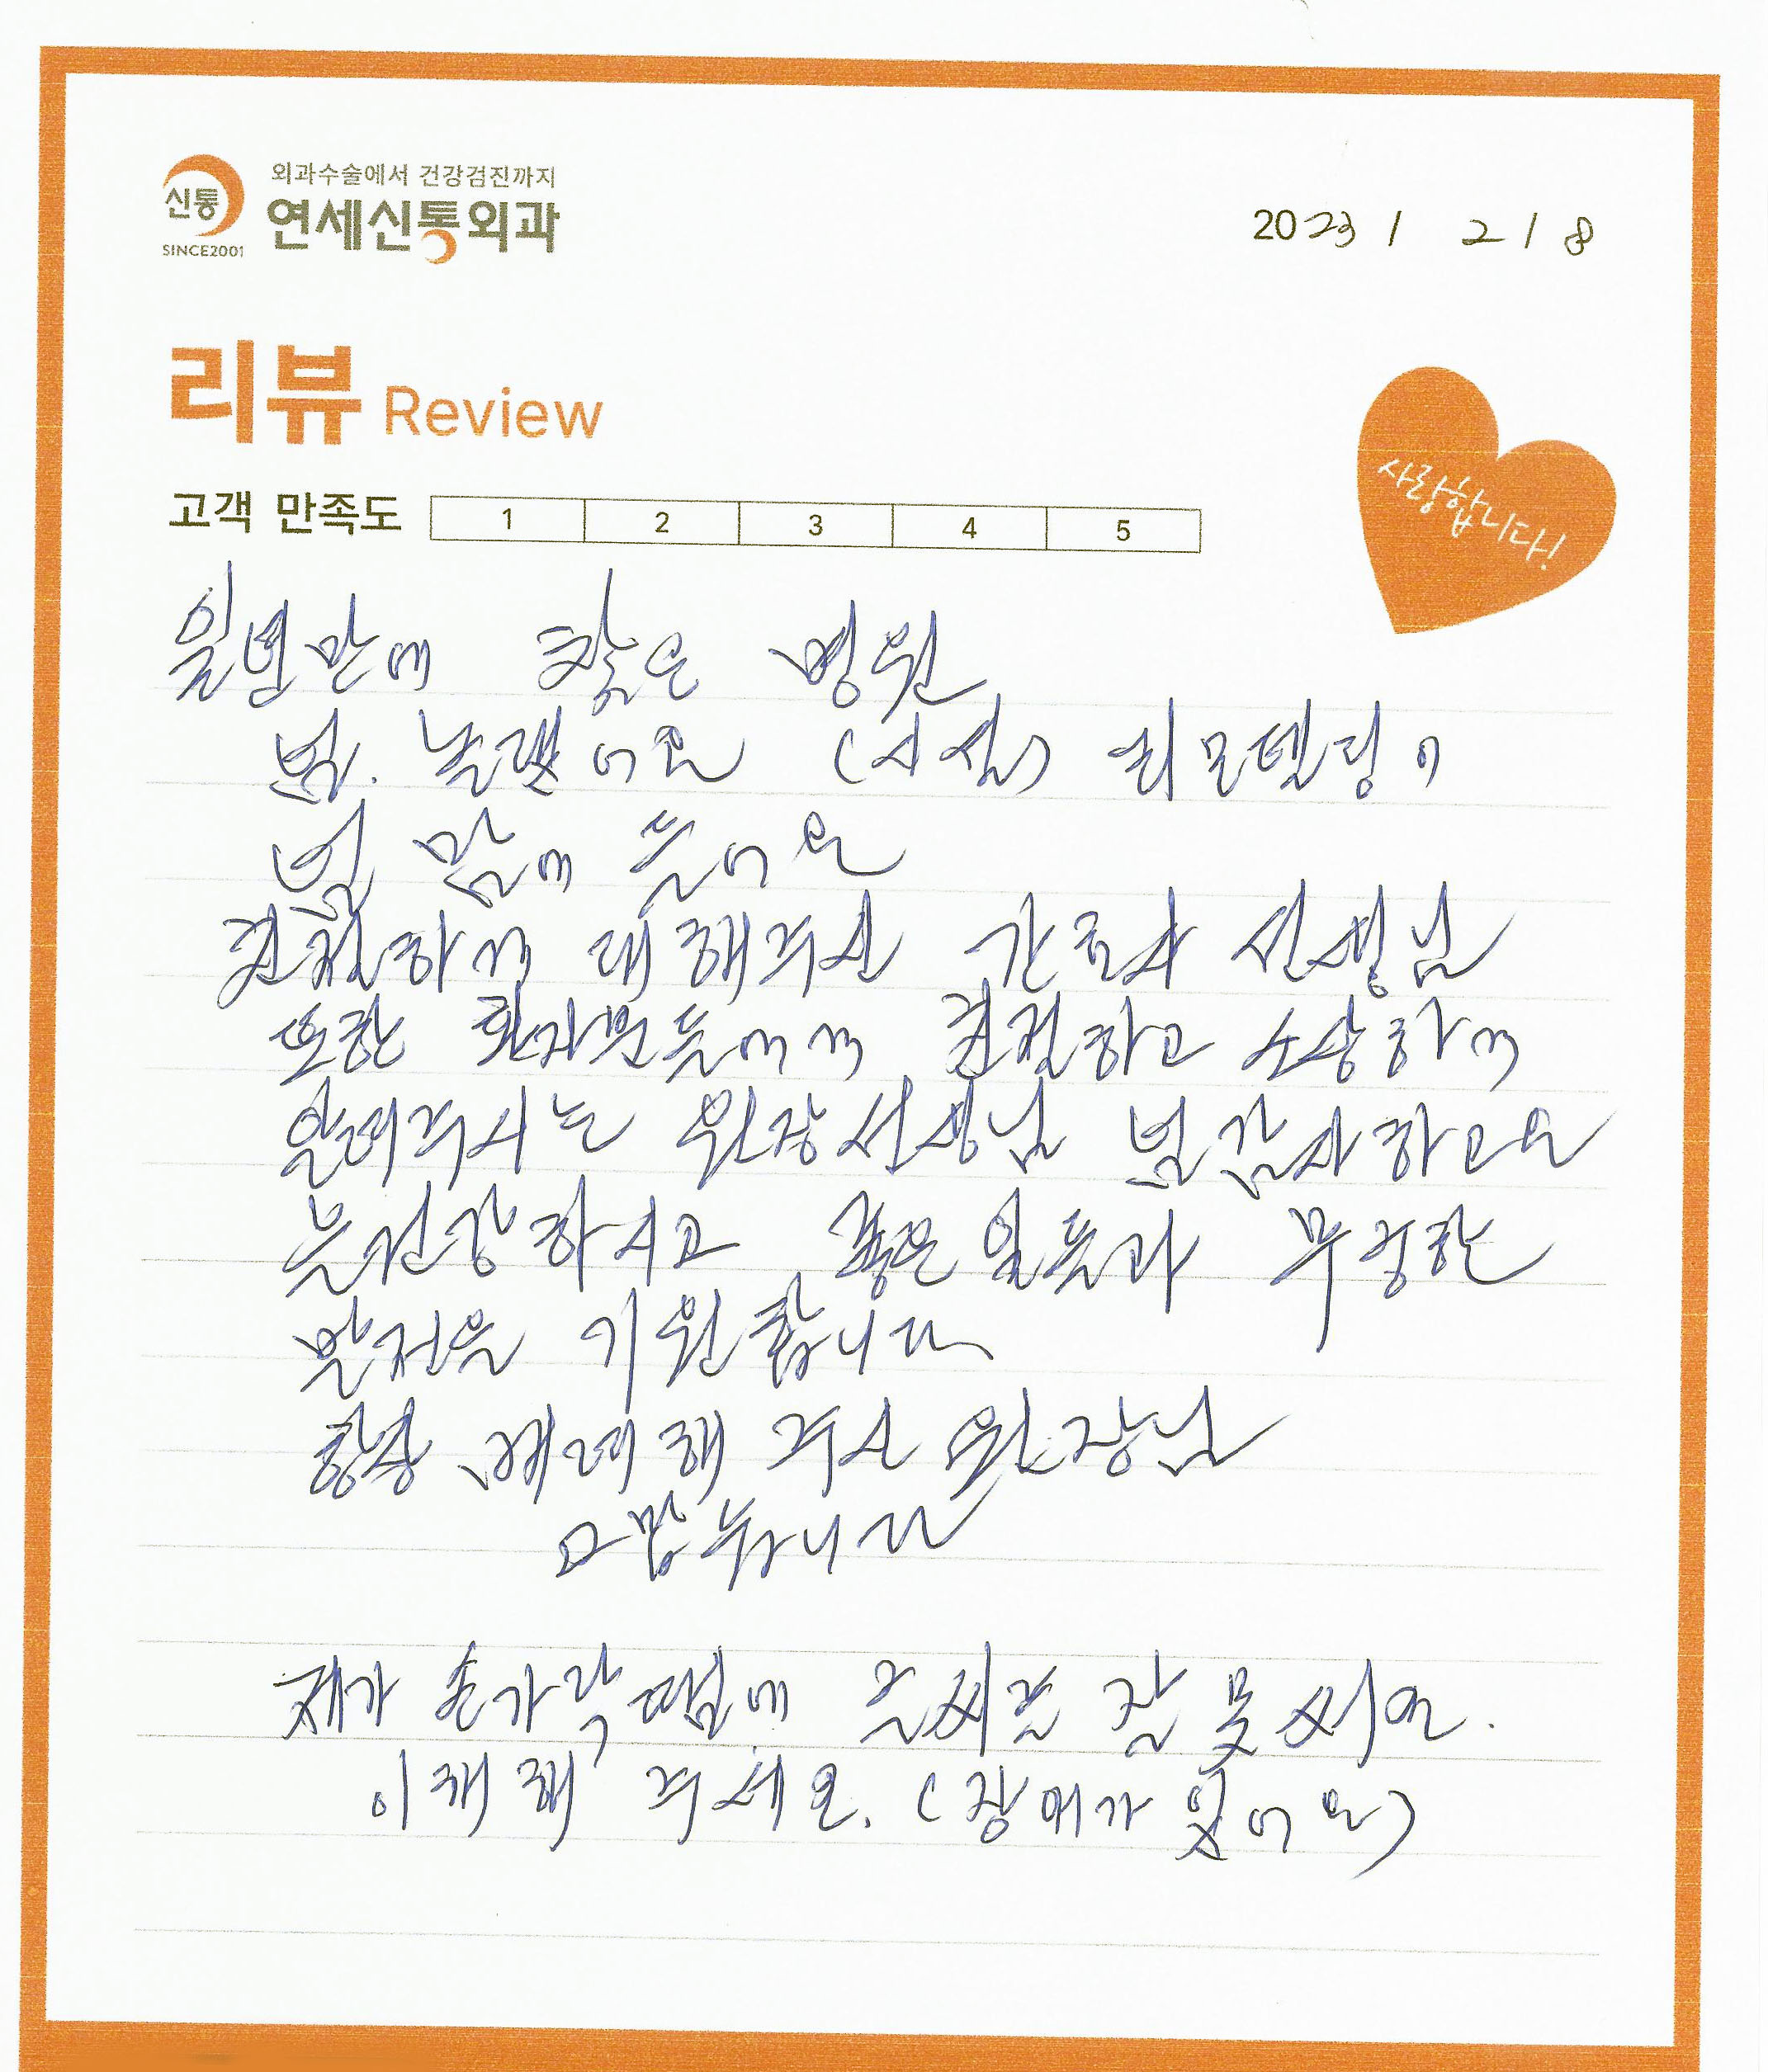 외과수술에서 건강검진까지
신통 연세신통외과
SINCE2001
2023 / 2 / 8
리뷰 Review
사랑합니다!
고객 만족도 1 2 3 4 5
일년만에 찾은 병원
넘. 놀랬어요 (시설) 리모델링이
넘 맘에 들어요
친절하게 대해주신 간호사 선생님
또한 환자분들에게 친절하고 소상하게
알려주시는 원장선생님 넘 감사하고요
늘건강하시고 좋은일들과 무궁한
발전을 기원합니다
항상 배려해 주신 원장님
고맙습니다
제가 손가락땜에 글씨를 잘 못써요.
이해해 주세요. (장애가 있어요)